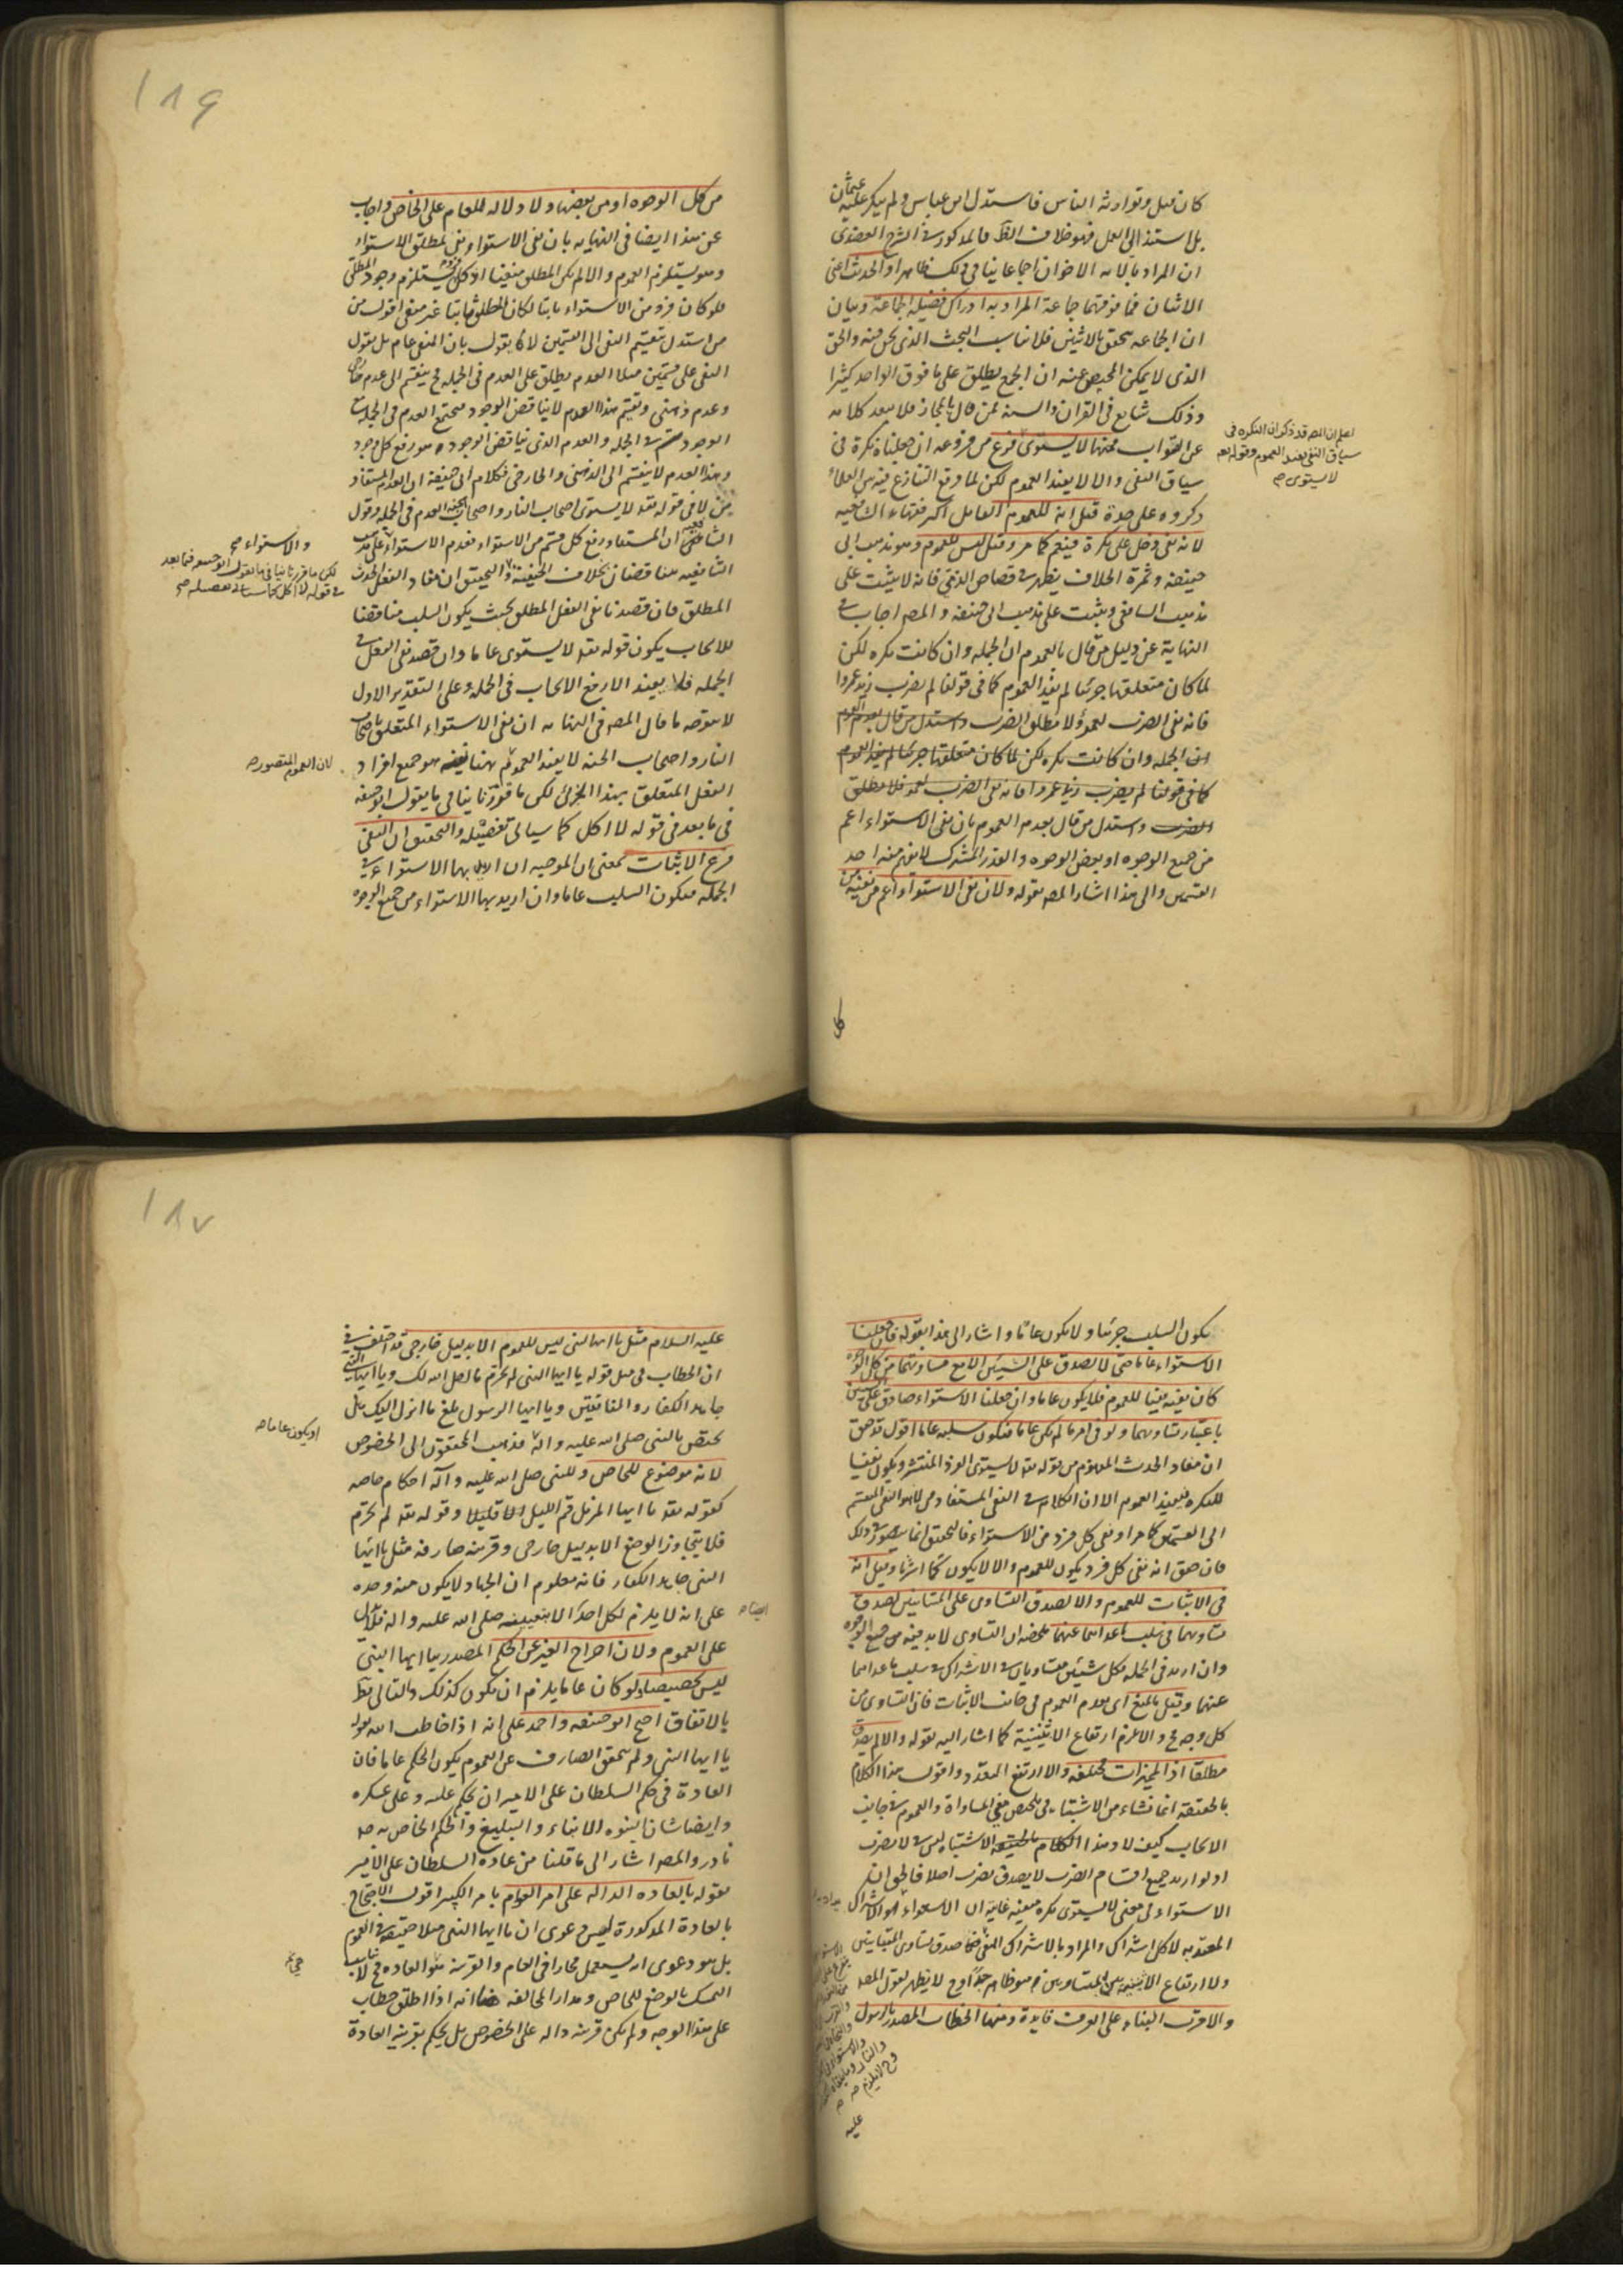 كان قبل وتوارثه الناس فاستدل ابن عباس ولم ينكر عليه عثمان
بل استند الى العمل فهو خلاف الظ فالمذكور فى الشرح العضدى
ان المراد بالاية الاخوان اجماعا ينافى ذلك ظاهرا والحديث اعنى
الاثنان فما فوقهما جماعة المراد به ادراك فضيلة الجماعة وبيان
ان الجماعة يتحقق بالاثنين فلا يناسب البحث الذى نحن فيه والحق
الذى لا يمكن المحيص عنه ان الجمع يطلق على ما فوق الواحد كثيرا
وذلك شايع فى القران والسنة فمن قال بالمجاز فلا يبعد كلامه
عن الصواب ومنها لا يستوى فرع من فروعه ان جعلناه نكرة فى
سياق النفى والا لا يفيد العموم لكن لما وقع التنازع فيه من العلماء
ذكروه على حدة قيل انه للعموم القائل اكثر فقهاء الشافعيه
لانه نفى دخل على نكرة فيعم كما مر وقيل ليس للعموم وهو مذهب ابى
حنيفة وثمرة الخلاف يظهر فى قصاص الذمى فانه لا يثبت على
مذهب الشافعى ويثبت على مذهب ابى حنيفة والمص اجاب فى
النهاية عن دليل من قال بالعموم ان الجملة وان كانت نكره لكن
لما كان متعلقها جزئيا لم يفد العموم كما فى قولنا لم يضرب زيد عمروا
فانه نفى الضرب لعمرو لا مطلق الضرب واستدل من قال بعدم العموم
ان الجملة وان كانت نكره لكن لما كان متعلقها جزئيا لم يفيد العموم
كما فى قولنا لم يضرب زيد عمروا فانه نفى الضرب لعمرو فلا مطلق
الضرب واستدل من قال بعدم العموم بان نفى الاستواء اعم
من جميع الوجوه او بعض الوجوه والقدر المشترك لا يفهم منه احد
القسمين والى هذا اشار المص بقوله ولان نفى الاستواء اعم من نفيه من
كل
اعلم ان المص قد ذكر ان النكره فى
سياق النفى يفيد العموم وقوله تعم
لا يستوى صح
١٨٦
من كل الوجوه او من بعضها ولا دلالة للعام على الخاص واجاب
عن هذا ايضا فى النهايه بان نفى الاستواء نفى لمطلق الاستواء
وهو يستلزم العموم والا لم يكن المطلق منفيا اذ كل فرد يستلزم وجود المطلق
فلو كان فرد من الاستواء ثابتا لكان المطلق ثابتا غير منفى اقول من
من استدل بتقسيم النفى الى القسمين لا يقول بان النفى عام بل يقول
النفى على قسمين مثلا العدم يطلق على العدم فى الجملة ينقسم الى عدم خارجى
وعدم ذهنى وتقسيم هذا العدم لا يناقض الوجود فيجتمع العدم فى الجملة مع
الوجود فى الجملة والعدم الذى يناقض الوجود هو رفع كل وجود
وهذا العدم لا ينقسم الى الذهنى والخارجى فكلام ابى حنيفة ان العدم المستفاد
من لا فى قوله تعه لا يستوى اصحاب النار واصحاب الجنه العدم فى الجملة وقول
الشافعى ان المستفاد رفع كل قسم من الاستواء فعدم الاستواء على مذهب
الشافعيه متناقضان بخلاف الحنفية والتحقيق ان مفاد الفعل الحدث
المطلق فان قصدنا نفى الفعل المطلق بحيث يكون السلب مناقضا
للايجاب يكون قوله تعه لا يستوى عاما وان قصد نفى الفعل فى
الجملة فلا يفيد الا رفع الايجاب فى الجملة وعلى التقدير الاول
لا يتوجه ما قال المص فى النهاية ان نفى الاستواء المتعلق باصحاب
النار واصحاب الجنة لا يفيد العموم هنا هو جميع افراد
الفعل المتعلق بهذا الجزئى لكن ما قررنا ينافى ما يقول ابو حنيفة
فى ما بعد فى قوله لا اكل كما سياتى تفصيله والتحقيق ان النفى
فرع الاثبات بمعنى ان الموجبه ان اريد بها الاستواء فى
الجملة فيكون السلب عاما وان اريد بها الاستواء من جميع الوجوه
والاستواء صح
لكن ما قررنا ينافى ما يقول ابو حنيفه فيما بعد
فى قوله لا اكل كما سياتى تفصيله صح
لان العموم المتصور صح
يكون السلب جزئيا ولا يكون عاما واشار الى هذا بقوله فان جعلنا
الاستواء عاما حتى لا يصدق على الشيئين الا مع مساوتهما من كل الوجوه
كان نفيه نفيا للعموم فلا يكون عاما وان جعلنا الاستواء صادق على الشيئين
باعتبار تساويهما ولو فى امر ما لم يكن عاما فيكون سلبه عاما اقول قد حقق
ان مفاد الحدث المفهوم من قوله تعه لا يستوى الفرد المنتشر ويكون نفيا
للنكره فيفيد العموم الا ان الكلام فى النفى المستفاد من لا هو النفى المنقسم
الى القسمين كما مر او نفى كل فرد من الاستواء فالتحقيق انما يتصور فى ذلك
فان حقق انه نفى كل فرد يكون للعموم والا لا يكون كما اشرنا وقيل انه
فى الاثبات للعموم والا لصدق التساوى على المتباينين لصدق
تساويهما فى سلب ما عداهما عنهما ملخصه ان التساوى لابد فيه من جميع الوجوه
وان اريد فى الجملة فكل شيئين متساويان فى الاشتراك فى سلب ما عداهما
عنهما وقيل بالمنع اى بعدم العموم فى جانب الاثبات فان التساوى من
كل وجه مح والا لزم ارتفاع الاثنينية كما اشار اليه بقوله والا لم يصدق
مطلقا اذ المميزات مختلفة والا ارتفع التعدد واقول هذا الكلام
بالحقيقة انما نشاء من الاشتباه فى تلخيص نفى المساواة والعموم فى جانب
الايجاب كيف لا وهذا الكلام بالحقيقة الاشتباه ليس فى لا يضرب
اذ لو اريد جميع اقسام الضرب لا يصدق يضرب اصلا فالحق ان
الاستواء فى معنى لا يستوى نكره معينه غايته ان الاستواء هو الاشتراك
المعتد به لا كل اشتراك والمراد بالاشتراك المنفى فما صدق تساوى المتباينين
ولا ارتفاع الاثنينيه بين المتساويين وهو ظاهر جدا وح لا يظهر لقول المص
والاقرب البناء على العرف فايدة ومنها الخطاب المصدر بالرسول
عليه
١٨٧
عليه السلام مثل يا ايها النبى ليس للعموم الا بدليل خارجى قد اختلف فى
ان الخطاب فى مثل قوله يا ايها النبى لم تحرم ما احل الله لك ويا ايها النبى
جاهد الكفار والمنافقين ويا ايها الرسول بلغ ما انزل اليك هل
يختص بالنبى صلى الله عليه واله فذهب المحققون الى الخصوص
لانه موضوع للخاص وللنبى صلى الله عليه وآله احكام خاصه
كقوله تعه يا ايها المزمل قم الليل الا قليلا وقوله تعه لم تحرم
فلا يتجاوز الوضع الا بدليل خارجى وقرينه صارفه مثل يا ايها
النبى جاهد الكفار فانه معلوم ان الجهاد لا يكون منه وحده
على انه لا يلزم لكل احد الا بتعيينه صلى الله عليه واله فلا يدل
على العموم ولان اخراج الغير عن الحكم المصدر بيا ايها النبى
ليس تخصيصا ولو كان عاما يلزم ان يكون كذلك والتالى بط
بالاتفاق احتج ابو حنيفه واحمد على انه اذا خاطب الله بقوله
يا ايها النبى ولم يتحقق الصارف عن العموم يكون الحكم عاما فان
العادة فى حكم السلطان على الامير ان يحكم عليه وعلى عسكره
وايضا شان النبوه الانباء والتبليغ والحكم الخاص به صه
نادر والمص اشار الى ما قلنا من عادة السلطان على الامير
بقوله بالعاده الداله على امر العوام بامر الكبير اقول الاحتجاج
بالعادة المذكورة ليس دعوى ان يا ايها النبى مثلا حقيقه فى العموم
بل هو دعوى انه يستعمل مجازا فى العام والقرينه هو العاده فح لا يناسب
التمسك بالوضع للخاص ومدار المخالفه انه اذا اطلق خطاب
على هذا الوجه ولم يكن قرينه داله على الخصوص بل يحكم بقرينه العادة
او يكون عاما صح
ايضا صح